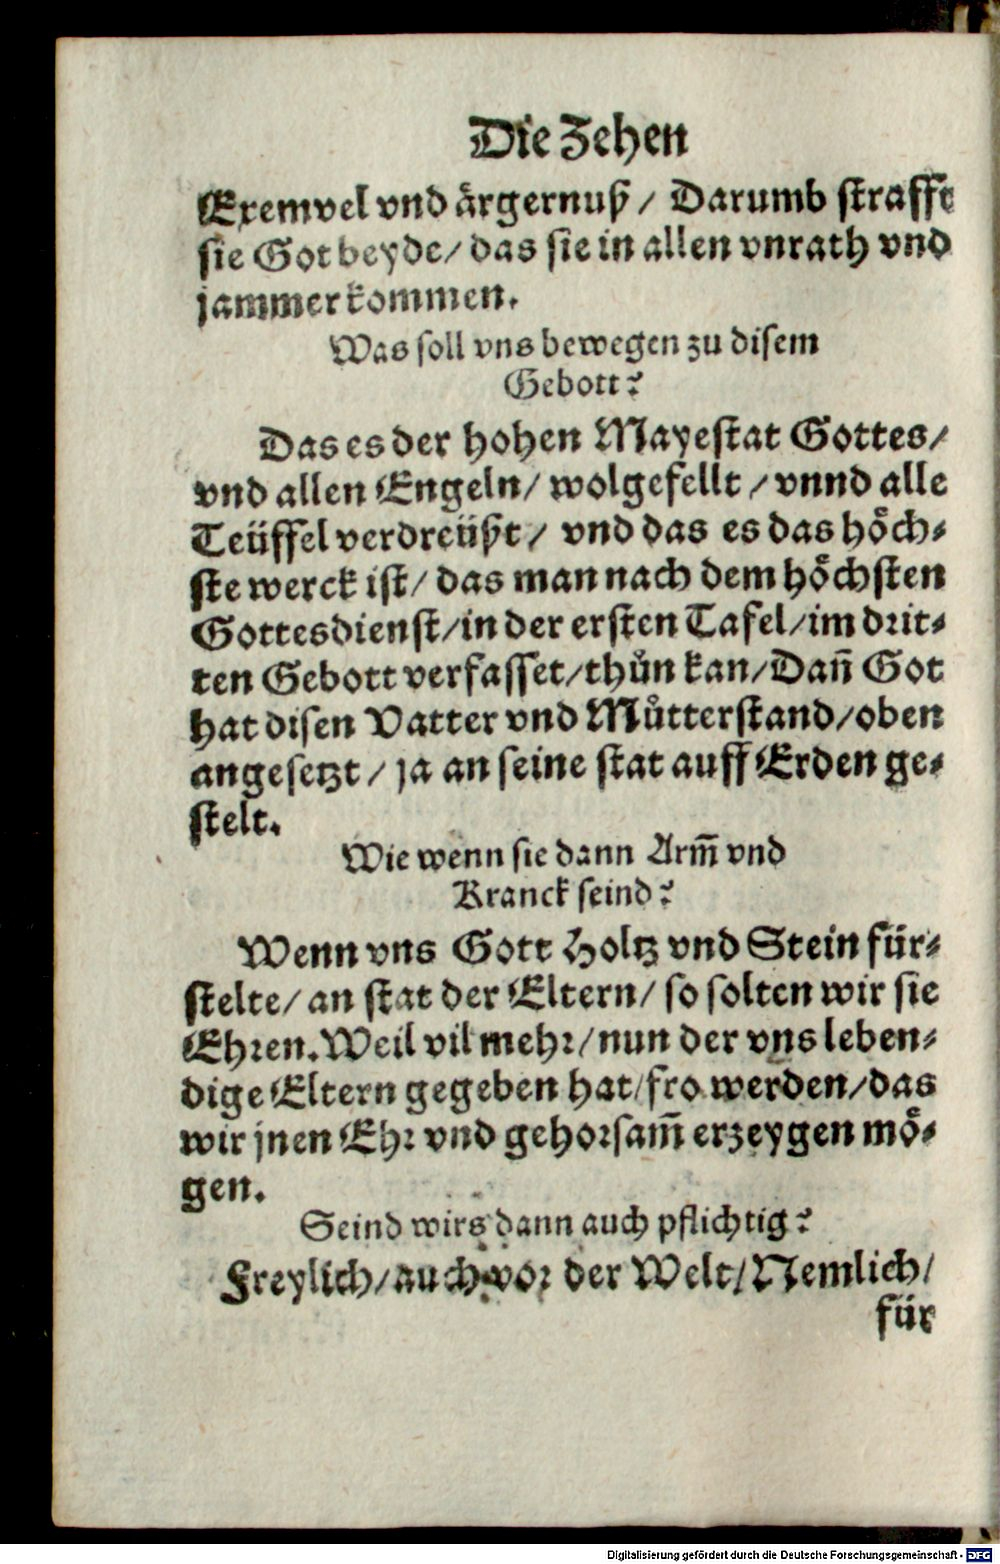 Die Zehen
Exempel vnd ärgernuß / Darumb strafft
sie Got beyde / das sie in allen vnrath vnd
jammer kommen.
Was soll vns bewegen zu disem
Gebott?
Das es der hohen Mayestat Gottes /
vnd allen Engeln / wolgefellt / vnnd alle
Teüffel verdreüßt / vnd das es das höch⸗
ste werck ist / das man nach dem höchsten
Gottesdienst / in der ersten Tafel / im drit⸗
ten Gebott verfasset / thůn kan / Dañ Got
hat disen Vatter vnd Můtterstand / oben
angesetzt / ja an seine stat auff Erden ge⸗
stelt.
Wie wenn sie dann Arm̃ vnd
Kranck seind?
Wenn vns Gott Holtz vnd Stein für⸗
stelte / an stat der Eltern / so solten wir sie
Ehren. Weil vil mehr / nun der vns leben⸗
dige Eltern gegeben hat / fro werden / das
wir jnen Ehr vnd gehorsam̃ erzeygen mö⸗
gen.
Seind wirs dann auch pflichtig?
Freylich / auch vor der Welt / Nemlich /
für
Digitalisierung gefördert durch die Deutsche Forschungsgemeinschaft - DFG